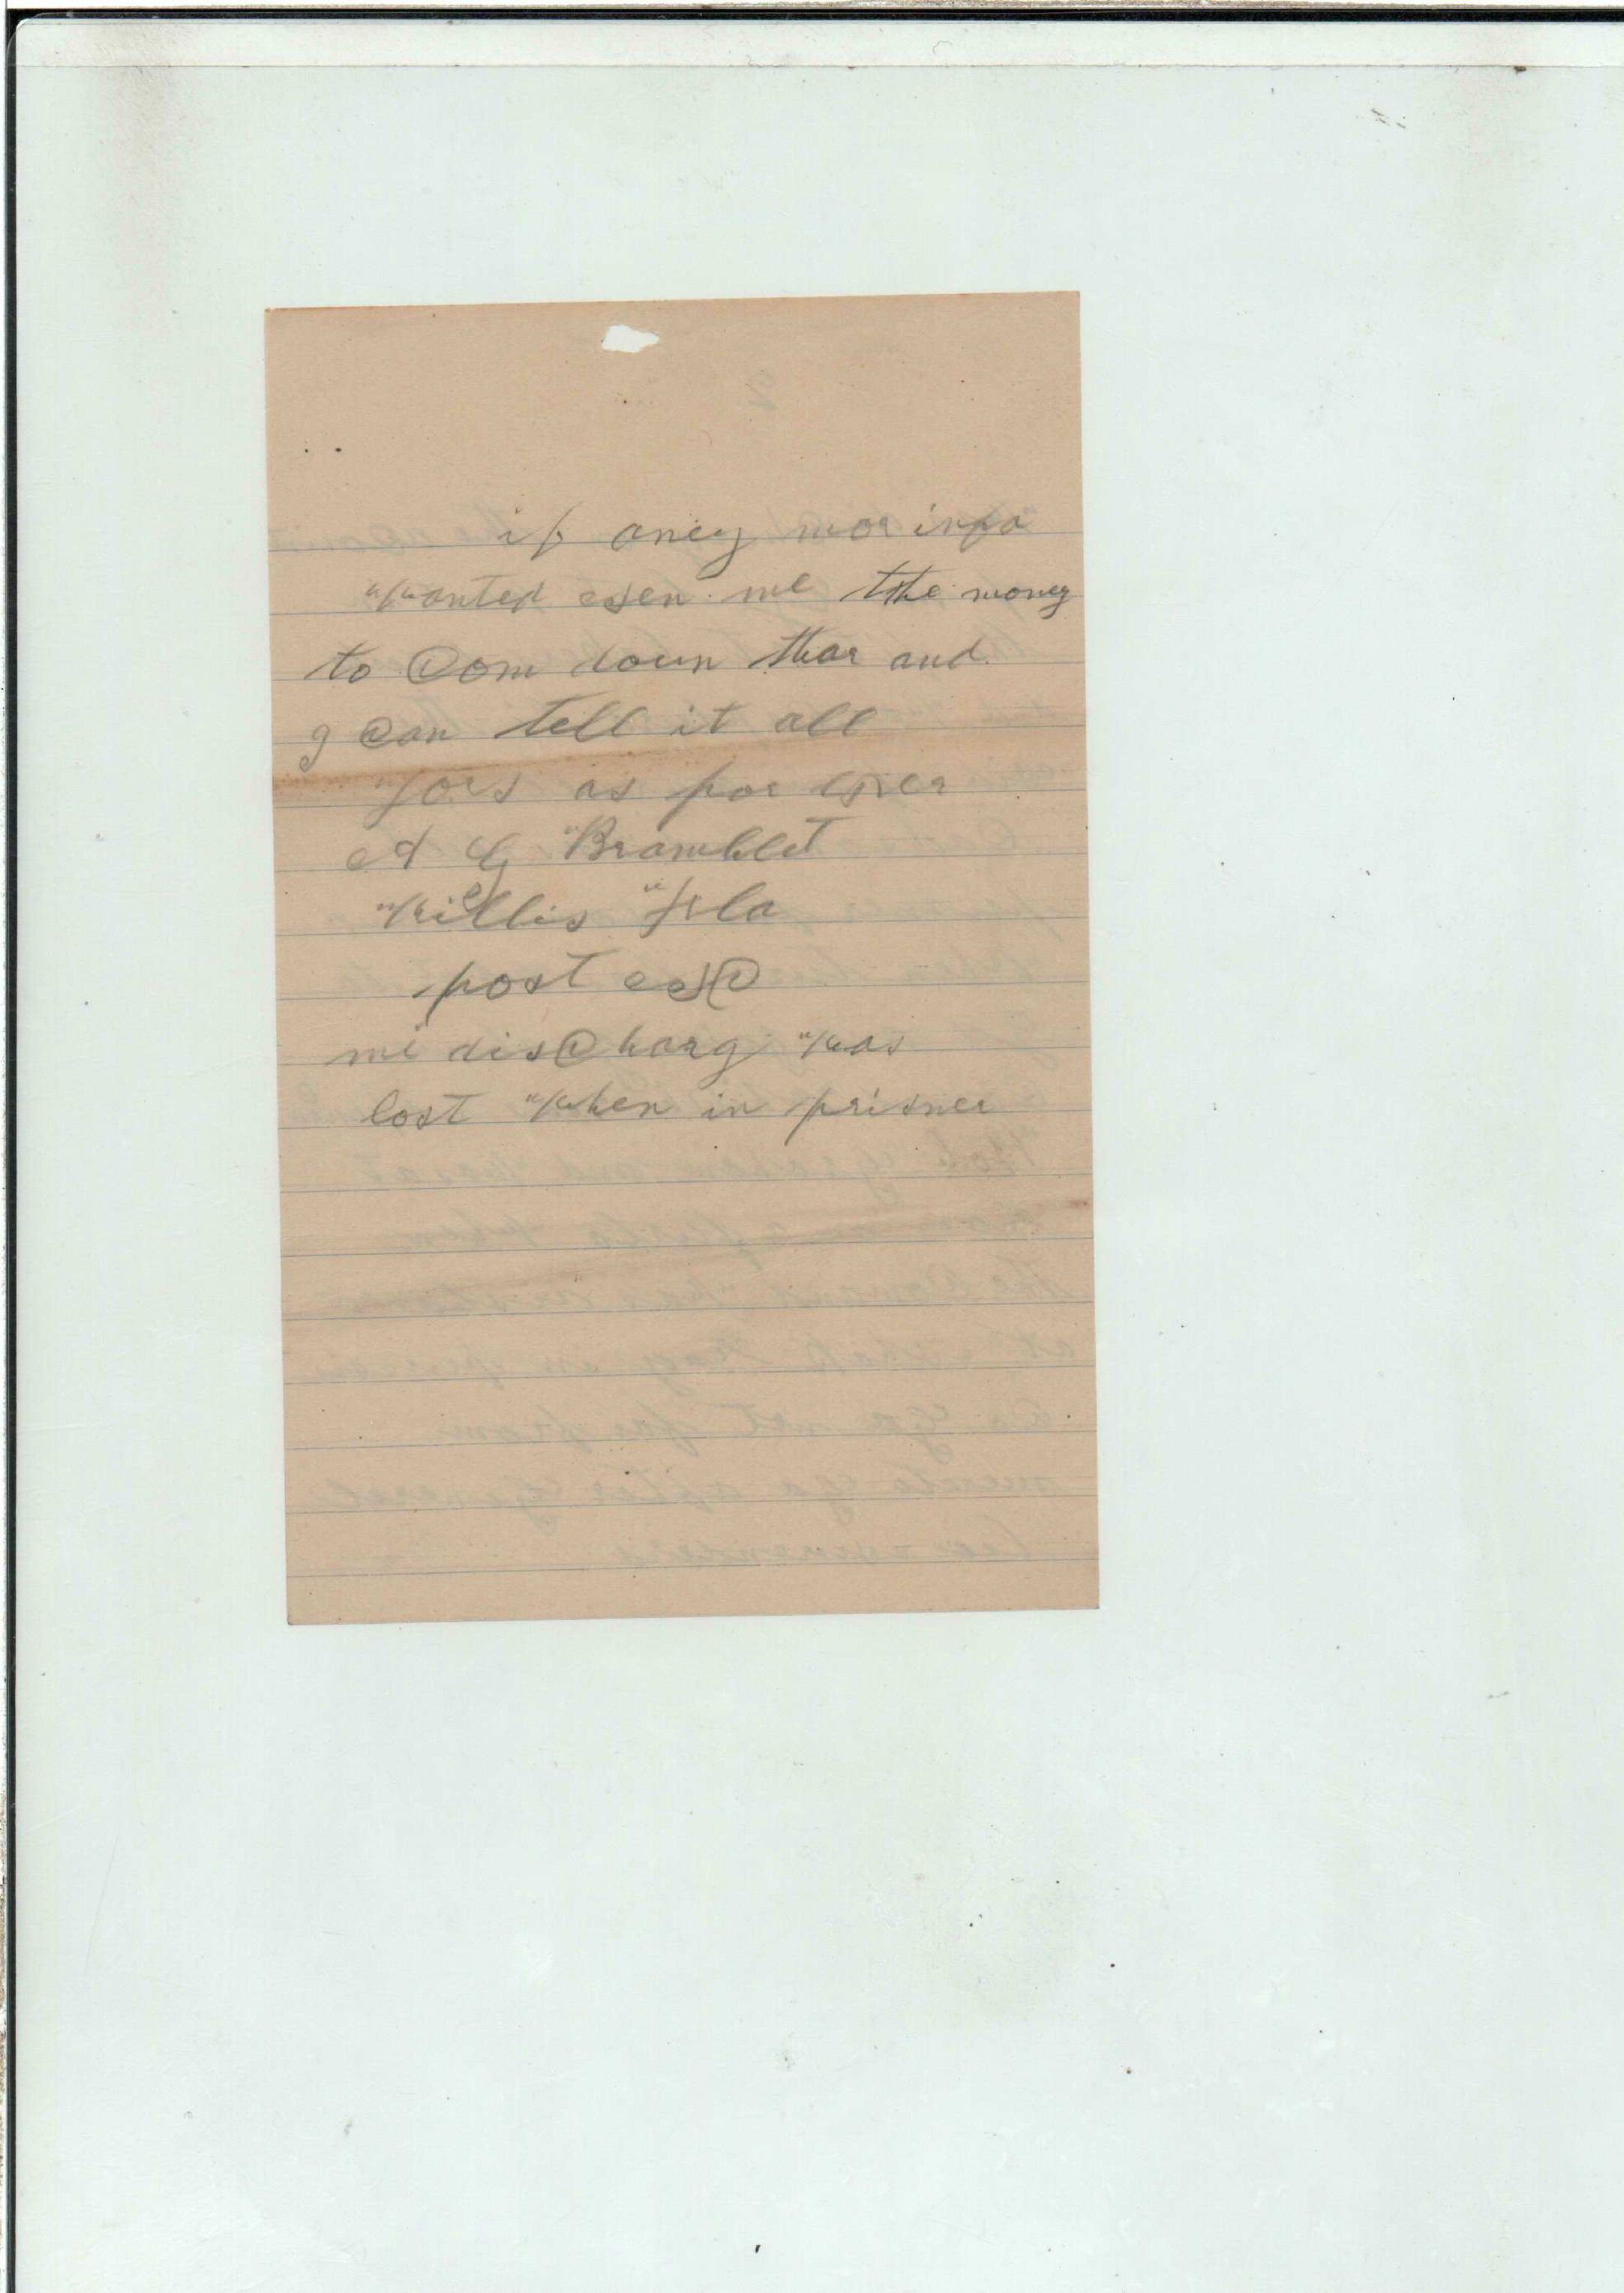 if aney mor info
Wanted sen me the money
to Com down thar and
I Can tell it all
yors as for ever
A G Bramblet
Willis Fla
post
mi disCharg Was
lost When in prisner